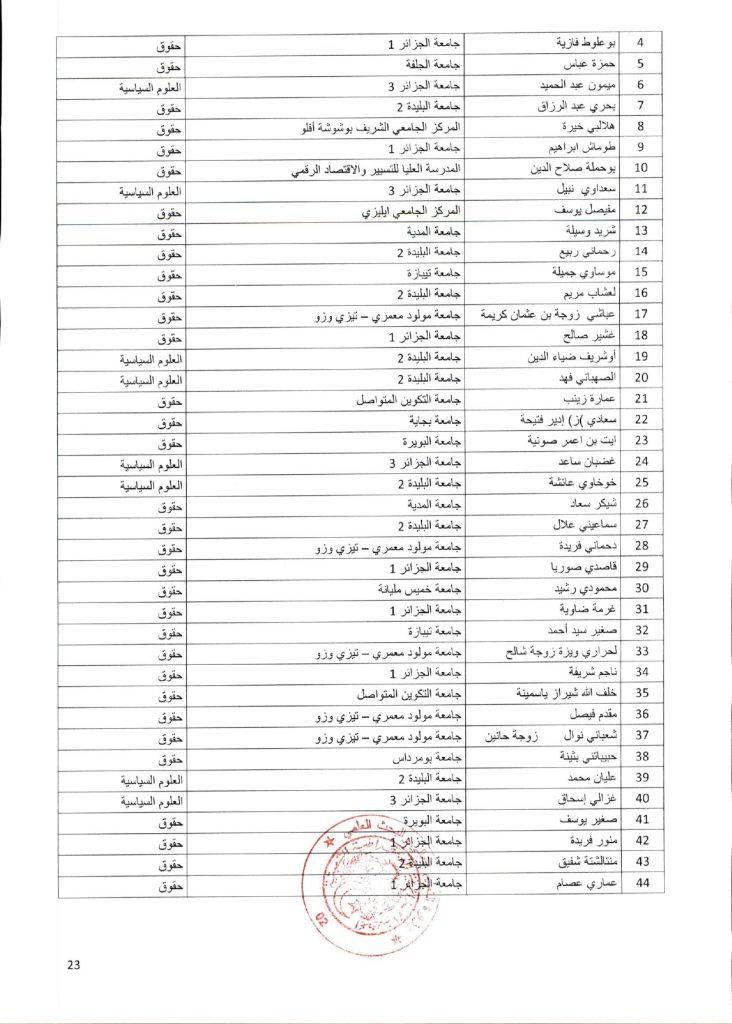 4 بوعلوط فازية جامعة الجزائر 1 حقوق
5 حمزة عباس جامعة الجلفة حقوق
6 ميمون عبد الحميد جامعة الجزائر 3 العلوم السياسية
7 بحري عبد الرزاق جامعة البليدة 2 حقوق
8 هلالبي خيرة المركز الجامعي الشريف بوشوشة أفلو حقوق
9 طوماش ابراهيم جامعة الجزائر 1 حقوق
10 بوحملة صلاح الدين المدرسة العليا للتسيير والاقتصاد الرقمي حقوق
11 سعداوي نبيل جامعة الجزائر 3 العلوم السياسية
12 مفيصل يوسف المركز الجامعي ايليزي حقوق
13 شريد وسيلة جامعة المدية حقوق
14 رحماني ربيع جامعة البليدة 2 حقوق
15 موساوي جميلة جامعة تيبازة حقوق
16 لعشاب مريم جامعة البليدة 2 حقوق
17 عباشي زوجة بن عثمان كريمة جامعة مولود معمري – تيزي وزو حقوق
18 غشير صالح جامعة الجزائر 1 حقوق
19 أوشريف ضياء الدين جامعة البليدة 2 العلوم السياسية
20 الصهباني فهد جامعة البليدة 2 العلوم السياسية
21 عمارة زينب جامعة التكوين المتواصل حقوق
22 سعادي )ز) إدير فتيحة جامعة بجاية حقوق
23 ايت بن اعمر صونية جامعة البويرة حقوق
24 غضبان ساعد جامعة الجزائر 3 العلوم السياسية
25 خوخاوي عائشة جامعة البليدة 2 العلوم السياسية
26 شيكر سعاد جامعة المدية حقوق
27 سماعيني علال جامعة البليدة 2 حقوق
28 دحماني فريدة جامعة مولود معمري – تيزي وزو حقوق
29 قاصدي صوريا جامعة الجزائر 1 حقوق
30 محمودي رشيد جامعة خميس مليانة حقوق
31 غرمة ضاوية جامعة الجزائر 1 حقوق
32 صغير سيد أحمد جامعة تيبازة حقوق
33 لحراري ويزة زوجة شالح جامعة مولود معمري – تيزي وزو حقوق
34 ناجم شريفة جامعة الجزائر 1 حقوق
35 خلف الله شيراز ياسمينة جامعة التكوين المتواصل حقوق
36 مقدم فيصل جامعة مولود معمري – تيزي وزو حقوق
37 شعباني نوال زوجة حانين جامعة مولود معمري – تيزي وزو حقوق
38 حبيباتني بثينة جامعة بومرداس حقوق
39 عليان محمد جامعة البليدة 2 العلوم السياسية
40 غزالي إسحاق جامعة الجزائر 3 العلوم السياسية
41 صغير يوسف جامعة البويرة حقوق
42 منور فريدة جامعة الجزائر 1 حقوق
43 منتالشتة شفيق جامعة البليدة 2 حقوق
44 عماري عصام جامعة الجزائر 1 حقوق
البحث العلمي
02
23